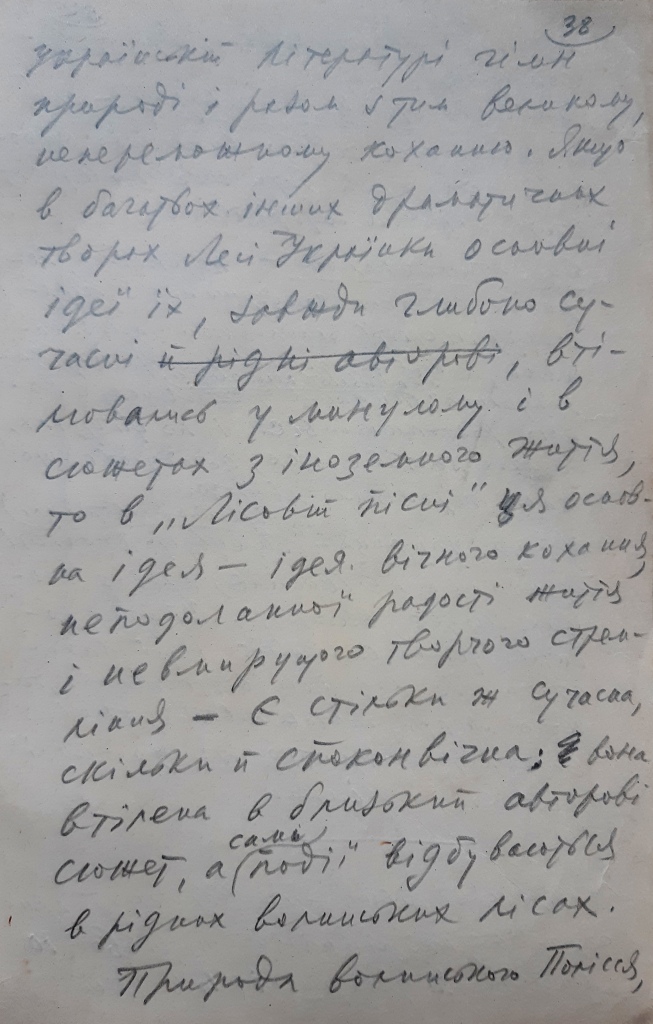 38
українській літературі гімн
природі і разом з тим великому,
непереможному коханню. Якщо
в багатьох інших драматичних
творах Лесі Українки основні
ідеї їх, завжди глибоко су-
часні й рідні авторові, вті-
лювались у минулому і в
сюжетах з іноземного життя,
то в „Лісовій пісні" ця основ-
на ідея — ідея вічного кохання,
неподоланної радості життя
і невмирущого творчого стрем-
ління — є стільки ж сучасна,
скільки й споконвічна; вона
втілена в близький авторові
сюжет, а самі події відбуваються
в рідних волинських лісах.
Природа волинського Полісся,